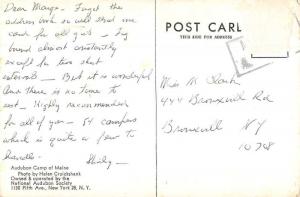 Dear Marge - Forget the
address book so will send one
card for all girls - I'm
bound almost constantly
except for two short
intervals - But it is wonderful
And there is no time to
rest - Highly recommended
for all of you - 54 campers
which is quite a few to
handle.
Shirley
Audubon Camp of Maine
Photo by Helen Cruickshank
Owned & operated by the
National Audubon Society
1130 Fifth Ave., New York 28, N. Y.
POST CARD
THIS SIDE FOR ADDRESS
Miss M Clark
444 Bronxville Rd
Bronxvill NY
10708